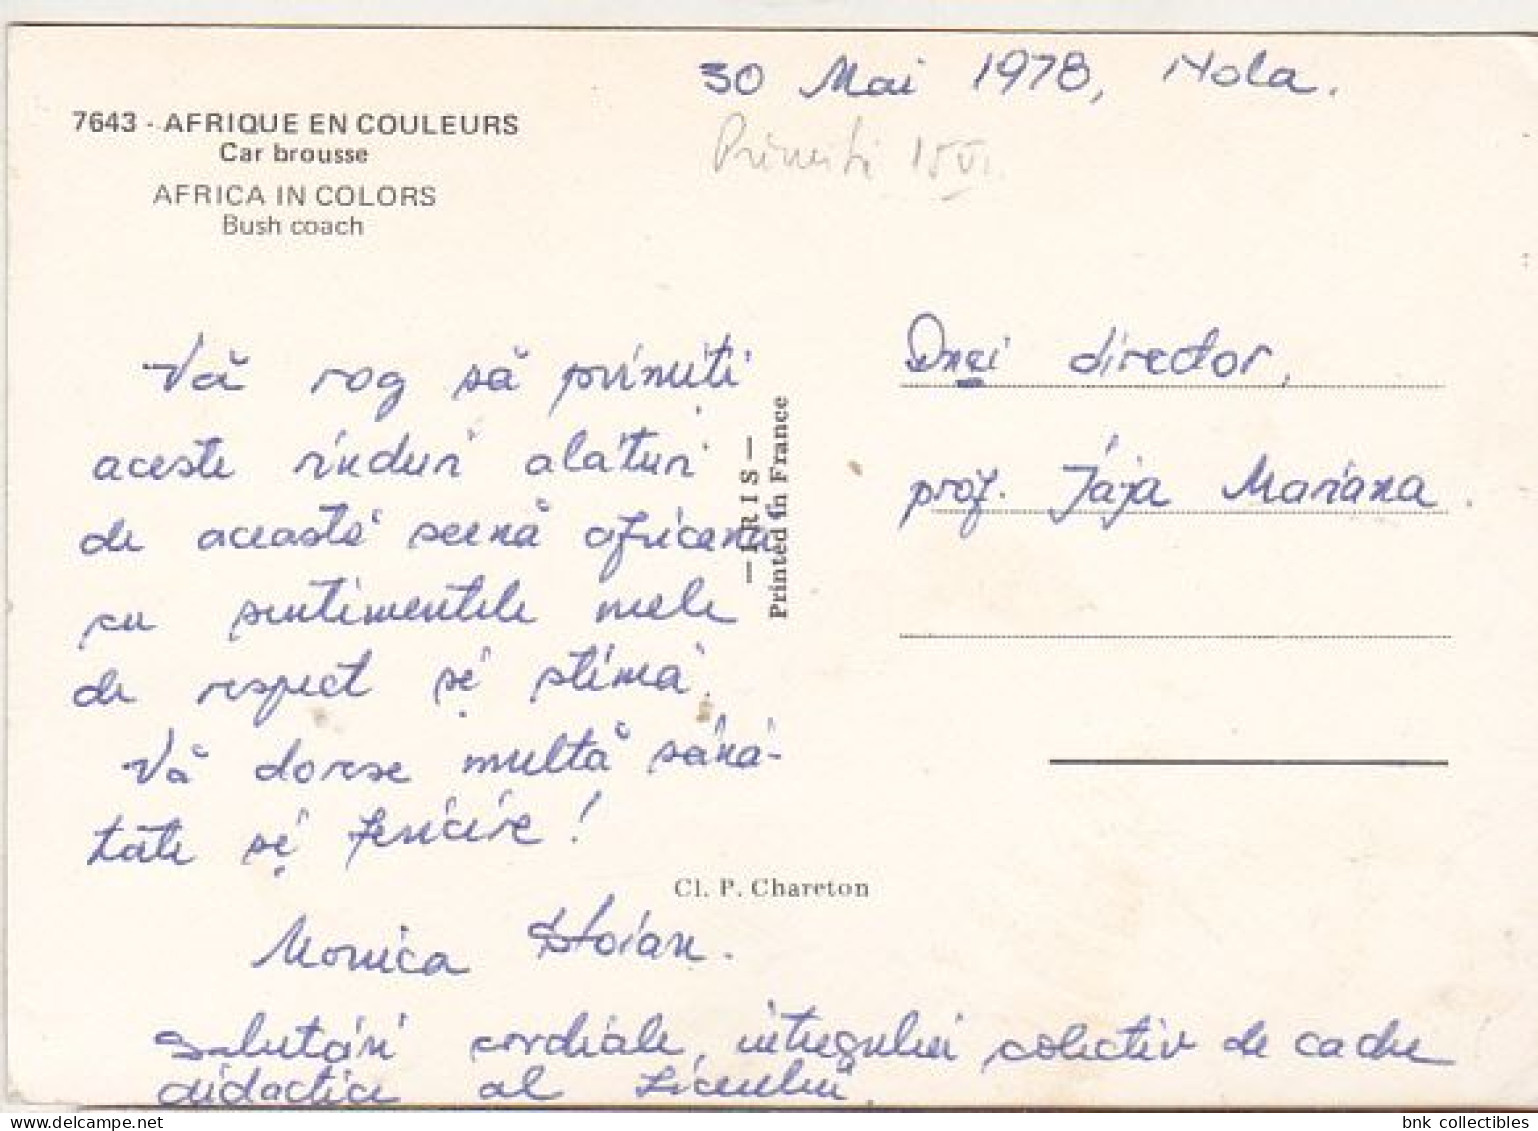 30 Mai 1978, Nola.
Primită 15 VI.
7643 - AFRIQUE EN COULEURS
Car brousse
AFRICA IN COLORS
Bush coach
Vă rog să primiți
aceste rînduri alături
de această scenă africană
cu sentimentele mele
de respect și stimă.
Vă doresc multă sănă-
tate și fericire!
Monica Stoian.
Salutări cordiale, întregului colectiv de cadre
didactice al Liceului.
— IRIS —
Printed in France
Cl. P. Chareton
Dnei director,
prof. Jája Mariana.
bnk collectibles